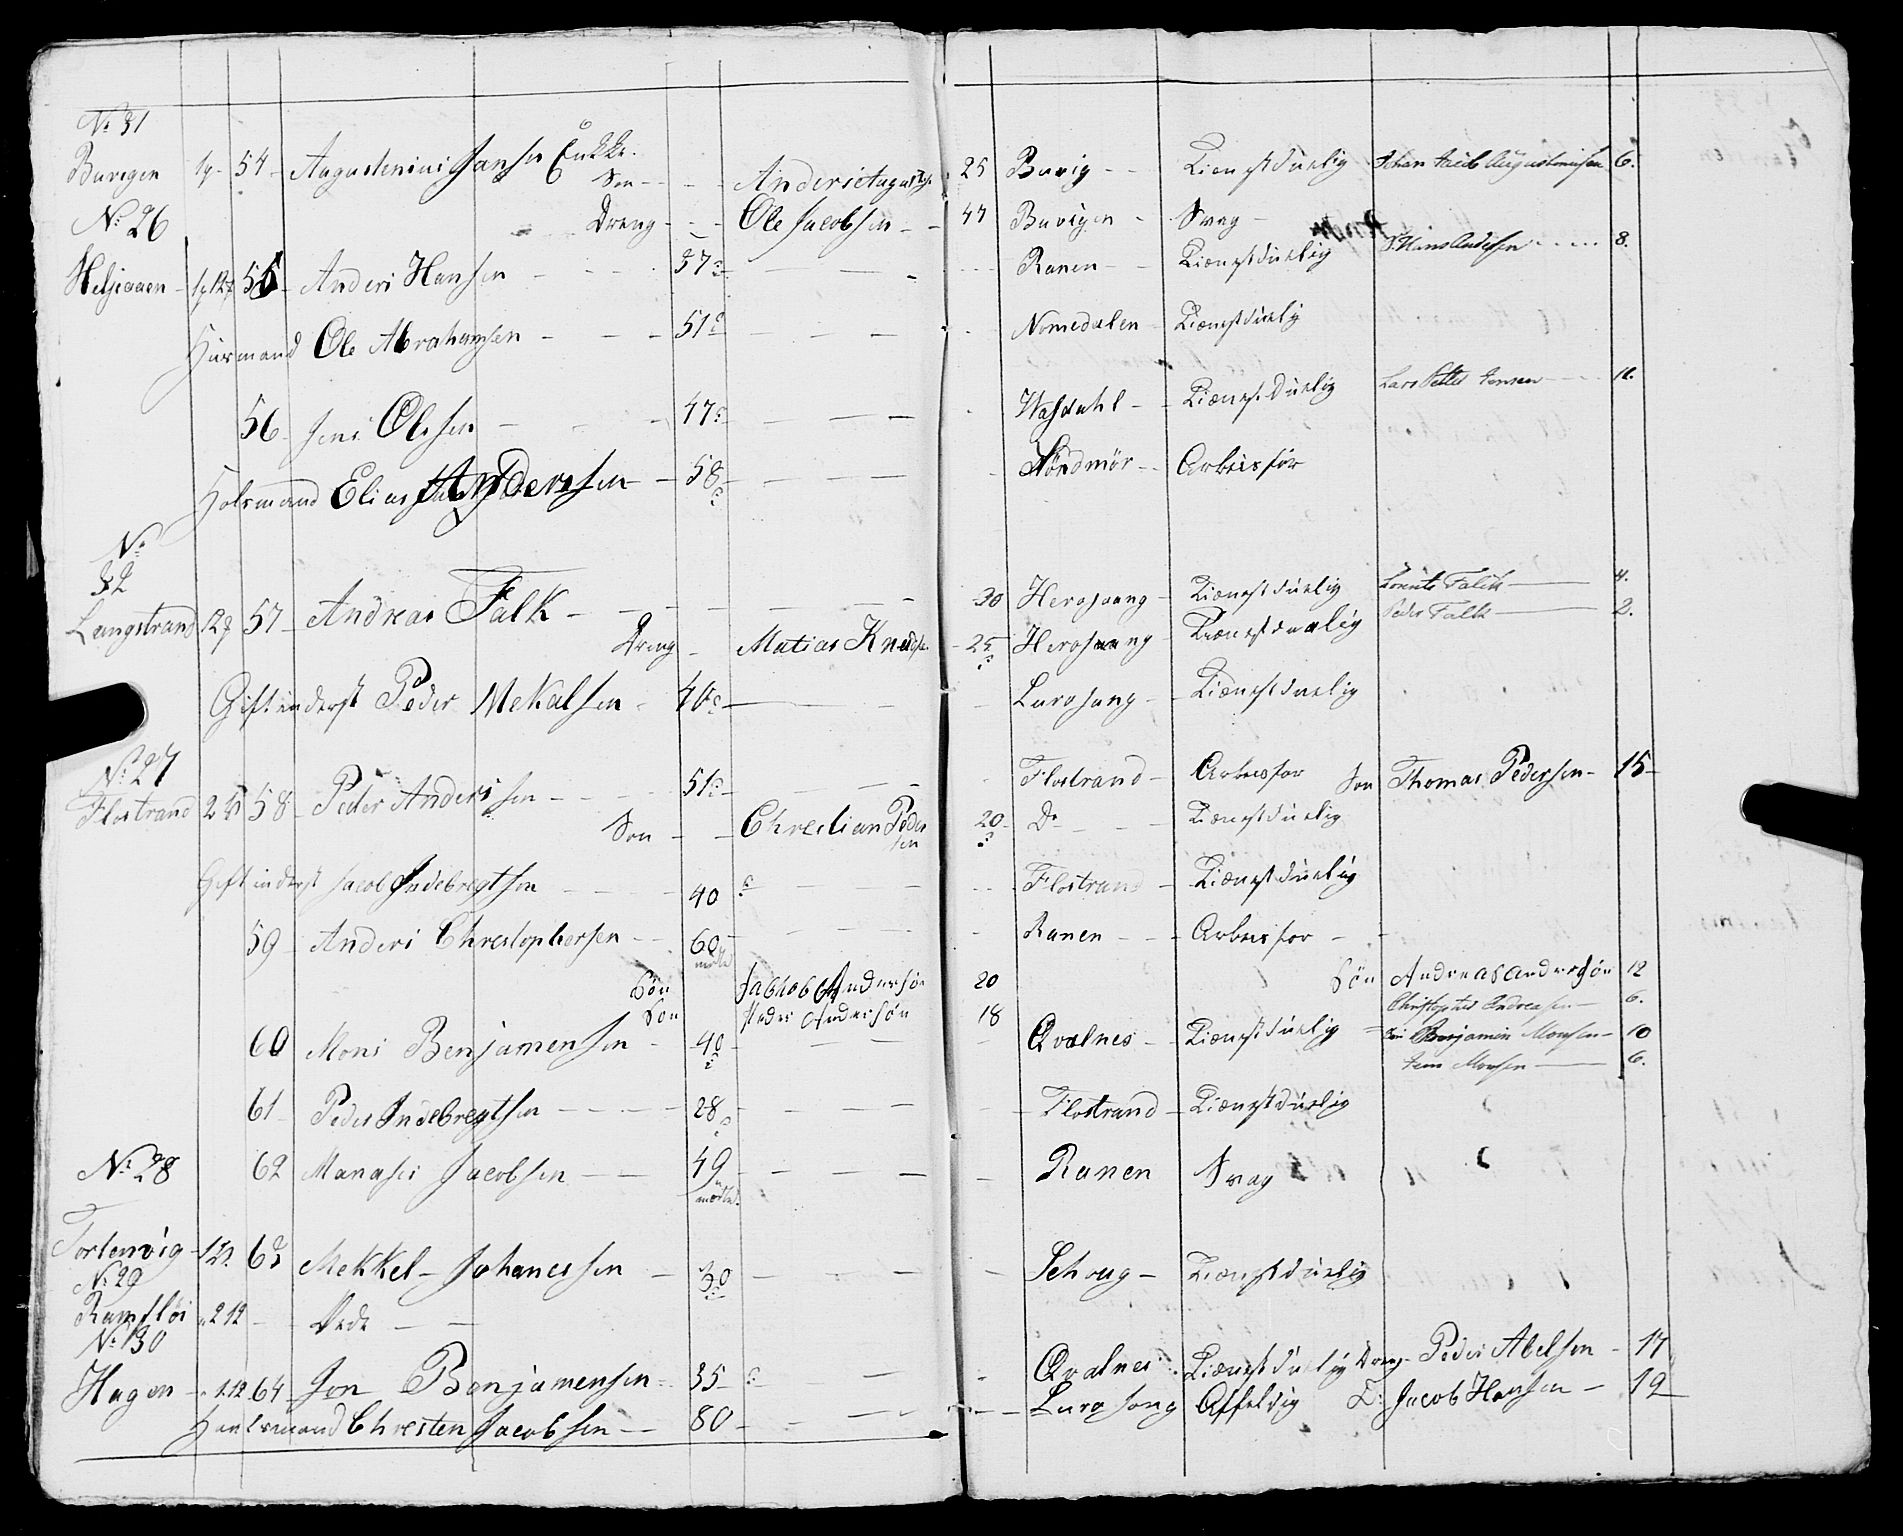 No 31
Buvigen 1p 54 Augustinius Jansen Enkke.
Søn Anders August 25 Buvig Tienestduelig Johan Jacob Augustinusen 6.
No 26
Dreng Ole Jacobsen 44 Buvigen Svag
Helsieaaen 55 Anders Hansen 37 Ranen Tienestduelig Hans Andersen 8.
Huusmand Ole Abrahamsen 51 Nomedalen Tienestduelig
56 Jens Olesen 47 Wasdahl Tienestduelig Lars Petter Jensen 11.
Holsmand Elias Anderssen 58 Nöndmör Arbeisför
No
32
Langstrand 57 Andreas Falk 30 Herosaang Tienestduelig Lorents Falck 4.
Peder Falk 2.
Dreng Matias Knudsen 25 Herosaang Tienestduelig
Gift inderst Peder Mekalsen 40 Lurosang Tienestduelig
No 27
Flostrand 58 Peder Anderssen 51 Flostrand Arbeisfor Søn Thomas Pedersen 15
Søn Chrestian Peder
sen 20 Do Tienestduelig
Gift inderst Jacob Indebregtsen 40 Flostrand Tienestduelig
59 Anders Chrestophersen 60 Ranen Arbeisfor
Sön Jabkob Andersön 20 Sön Andreas Andersön 12
Sön Peder Andersön 18 Christopher Andreasen 6.
60 Mons Benjamensen 40 Qvalnes Tienestduelig Benjamin Monsen 10
Jens Monsen 6.
61 Peder Indebregtsen 28 Flostrand Tienestduelig
No 28 62 Manases Jacobsen 49 Ranen Svag
Tortenvig 63 Mekkel Johanessen 30 Schoug Tienestduelig
No 29
Ramsfloi 2 12 Øde
No 30
Hagen 1 12 64 Jon Benjamensen 35 Qvalnes Tienestduelig Dreng Peder Abelsen 17
Huusmand Chresten Jacobsen 80 Lurosong Affeldig D: Jacob Hansen 19